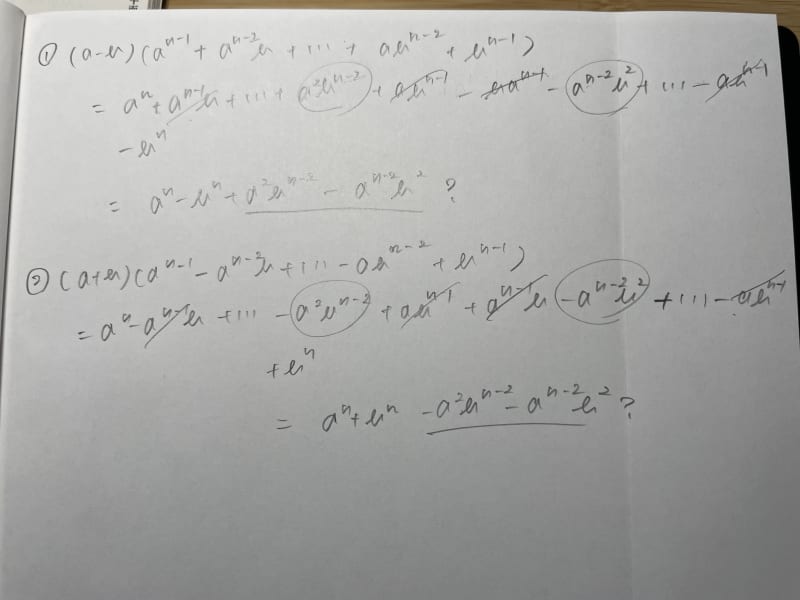 ① (a-b)(aⁿ⁻¹ + aⁿ⁻²b + ... + abⁿ⁻² + bⁿ⁻¹)
= aⁿ + aⁿ⁻¹b + ... + a²bⁿ⁻² + abⁿ⁻¹ - baⁿ⁻¹ - aⁿ⁻²b² + ... - abⁿ⁻¹
- bⁿ
= aⁿ - bⁿ + a²bⁿ⁻² - aⁿ⁻²b² ?
② (a+b)(aⁿ⁻¹ - aⁿ⁻²b + ... - abⁿ⁻² + bⁿ⁻¹)
= aⁿ - aⁿ⁻¹b + ... - a²bⁿ⁻² + abⁿ⁻¹ + aⁿ⁻¹b - aⁿ⁻²b² + ... - abⁿ⁻¹
+ bⁿ
= aⁿ + bⁿ - a²bⁿ⁻² - aⁿ⁻²b² ?